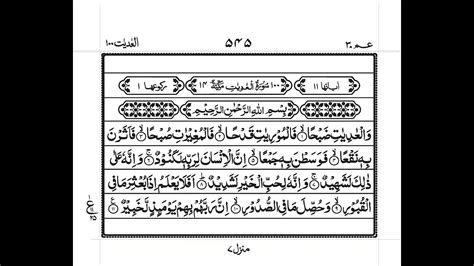 عم ٣٠ ۵۴۵ العٰدیٰت ١٠٠
اٰیاتها ١١ ١٠٠ سُوْرَةُ الْعٰدِيٰتِ مَكِّيَّةٌ ١۴ رکوعها ١
بِسْمِ اللّٰهِ الرَّحْمٰنِ الرَّحِيْمِ
وَالْعٰدِيٰتِ ضَبْحًا ۙ﴿١﴾ فَالْمُوْرِيٰتِ قَدْحًا ۙ﴿٢﴾ فَالْمُغِيْرٰتِ صُبْحًا ۙ﴿٣﴾ فَاَثَرْنَ
بِهٖ نَقْعًا ۙ﴿٤﴾ فَوَسَطْنَ بِهٖ جَمْعًا ۙ﴿٥﴾ اِنَّ الْاِنْسَانَ لِرَبِّهٖ لَكَنُوْدٌ ۚ﴿٦﴾ وَاِنَّهٗ عَلٰى
ذٰلِكَ لَشَهِيْدٌ ۚ﴿٧﴾ وَاِنَّهٗ لِحُبِّ الْخَيْرِ لَشَدِيْدٌ ؕ﴿٨﴾ اَفَلَا يَعْلَمُ اِذَا بُعْثِرَ مَا فِى
الْقُبُوْرِ ۙ﴿٩﴾ وَحُصِّلَ مَا فِى الصُّدُوْرِ ۙ﴿١٠﴾ اِنَّ رَبَّهُمْ بِهِمْ يَوْمَئِذٍ لَّخَبِيْرٌ ﴿١١﴾
ع
منزل ٧